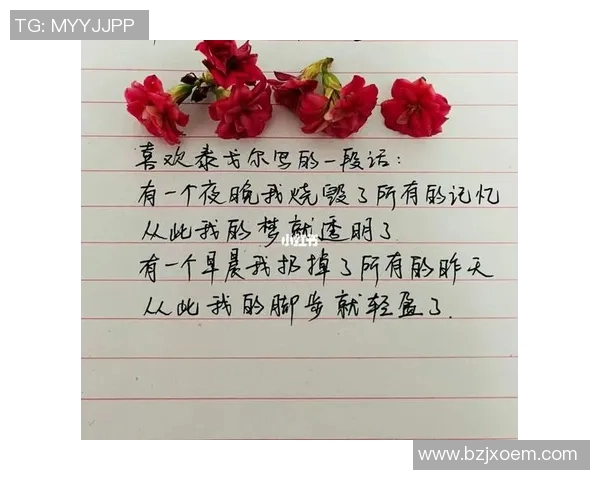 TG: MYYJJPP
喜欢泰戈尔写的一段话:
有一个夜晚我烧毁了所有的记忆
从此我的梦就透明了
小红书
有一个早晨我扔掉了所有的昨天
从此我的脚步就轻盈了.
www.bzjxoem.com